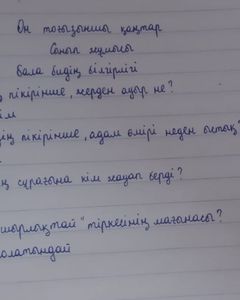 Он тоғызыншы қаңтар
Сынып жұмысы
Бала бидің білгірлігі
пікірінше, жерден ауыр не?
ім
ің пікірінше, адам өмірі неден ыстық?
ң сұрағына кім жауап берді?
шырлықтай" тіркесінің мағынасы?
олатындай